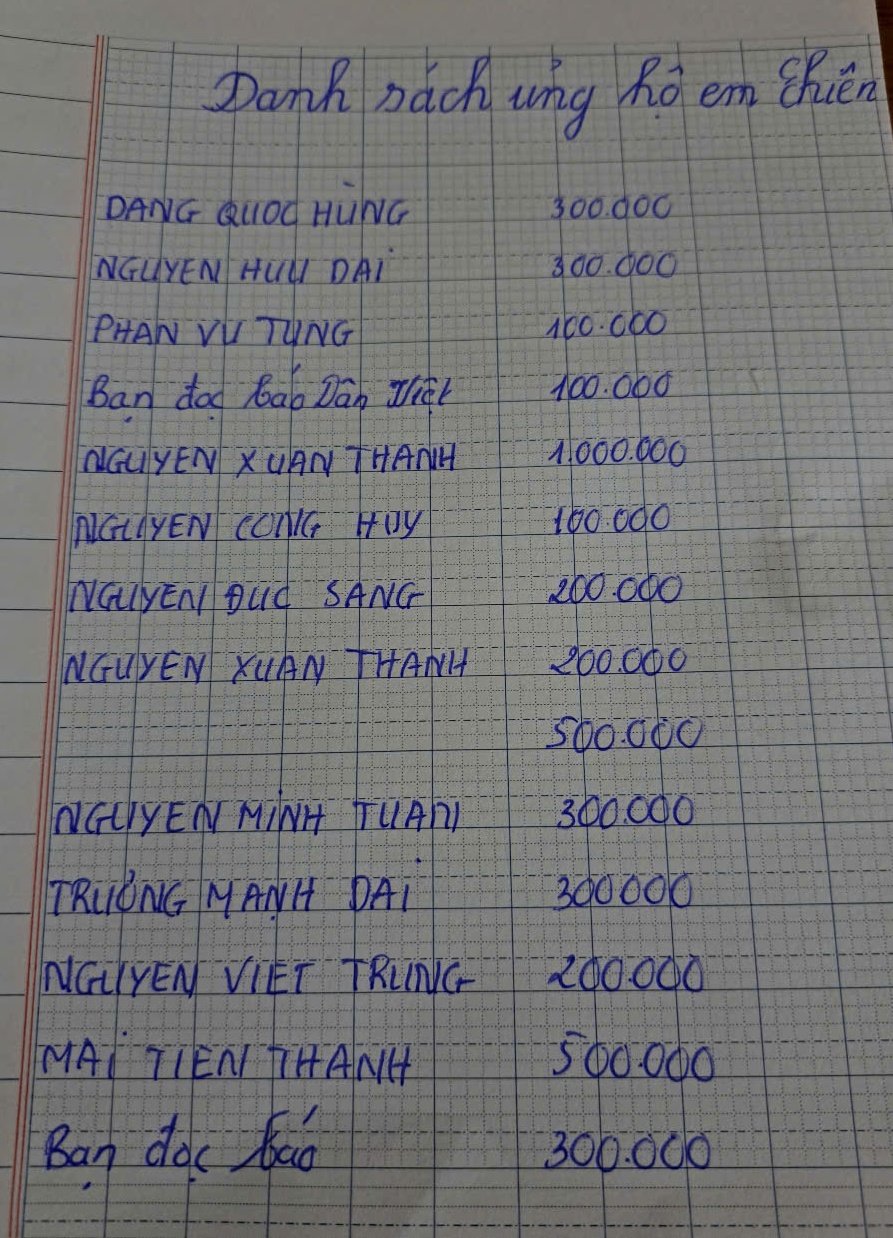 Danh sách ủng hộ em Chiên
DANG QUOC HÙNG 300.000
NGUYEN HUU DAI 300.000
PHAN VU TUNG 100.000
Bạn đọc báo Dân Việt 100.000
NGUYEN XUAN THANH 1.000.000
NGUYEN CONG HUY 100.000
NGUYEN ĐUC SANG 200.000
NGUYEN XUAN THANH 200.000
500.000
NGUYEN MINH TUAN 300.000
TRUỜNG MẠNH DAI 300000
NGUYEN VIET TRUNG 200.000
MAI TIEN THANH 500.000
Bạn đọc báo 300.000